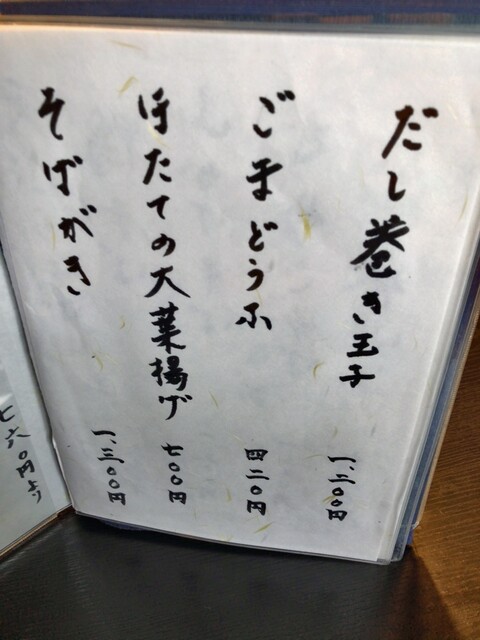 だし巻き玉子
一、二〇〇円
ごまどうふ
四二〇円
ほたての大葉揚げ
七〇〇円
そばがき
一、三〇〇円
七六〇円より